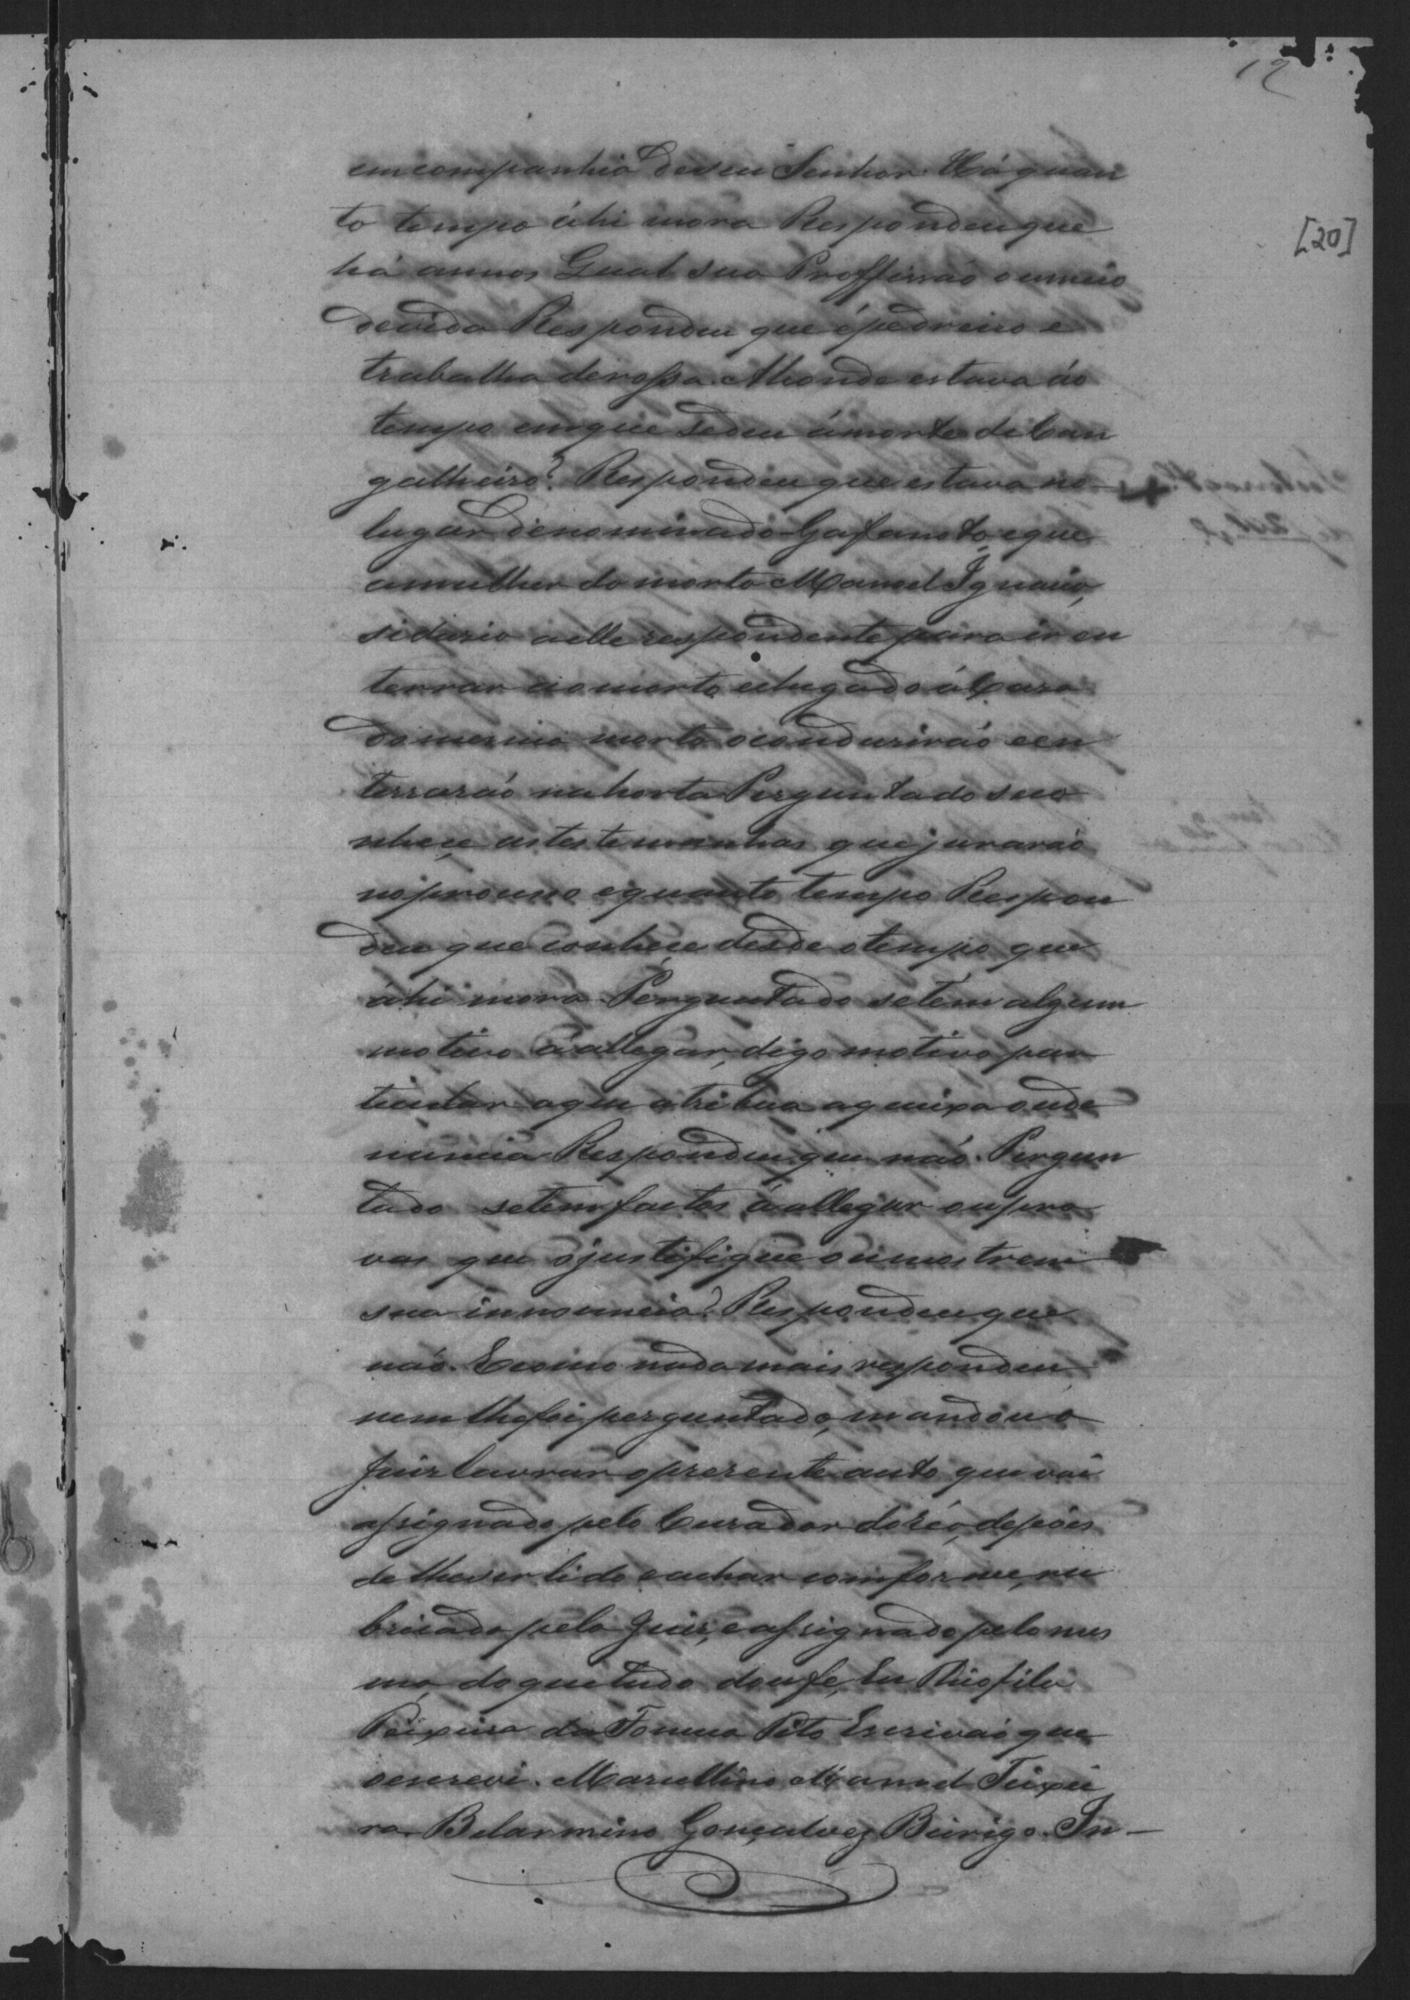 12
[20]
em companhia de seu Senhor. Há quan
to tempo ahi mora Respondeu que
há annos Qual sua Proffissão ou meio
de vida Respondeu que é pedreiro e
trabalha de rossa. Ahonde estava ao
tempo em que se deu a morte de Can
galheiro? Respondeu que estava no
lugar denominado Gafanoto, e que
a mulher do morto Manoel Ignacio,
a elle respondente para ir en
terrar ao morto, e chegado á Casa
do mesmo morto o conduzirão e en
terrarão na horta Perguntado se co
nhece as testemunhas que jurarão
no processo e quanto tempo Respon
deu que conhece desde o tempo que
ahi mora. Perguntado se tem algum
motivo a allegar, digo motivo par
ticular a que atribua a queixa ou de
nuncia Respondeu que não. Pergun
tado se tem factos á allegar ou pro
vas que o justifique ou mostrem
sua innocencia? Respondeu que
não. E como nada mais respondeu
nem lhe foi perguntado, mandou o
Juiz lavrar o presente auto que vai
assignado pelo Curador do réo, depois
de lhe ser lido e achar conforme, ru
bricado pelo Juiz, e assignado pelo mes
mo, do que tudo dou fé, Eu
da Escrivão que
o escrevi. Marcellino Manoel Teixei
ra. Belarmino Gonçalvez Búrigo. In-